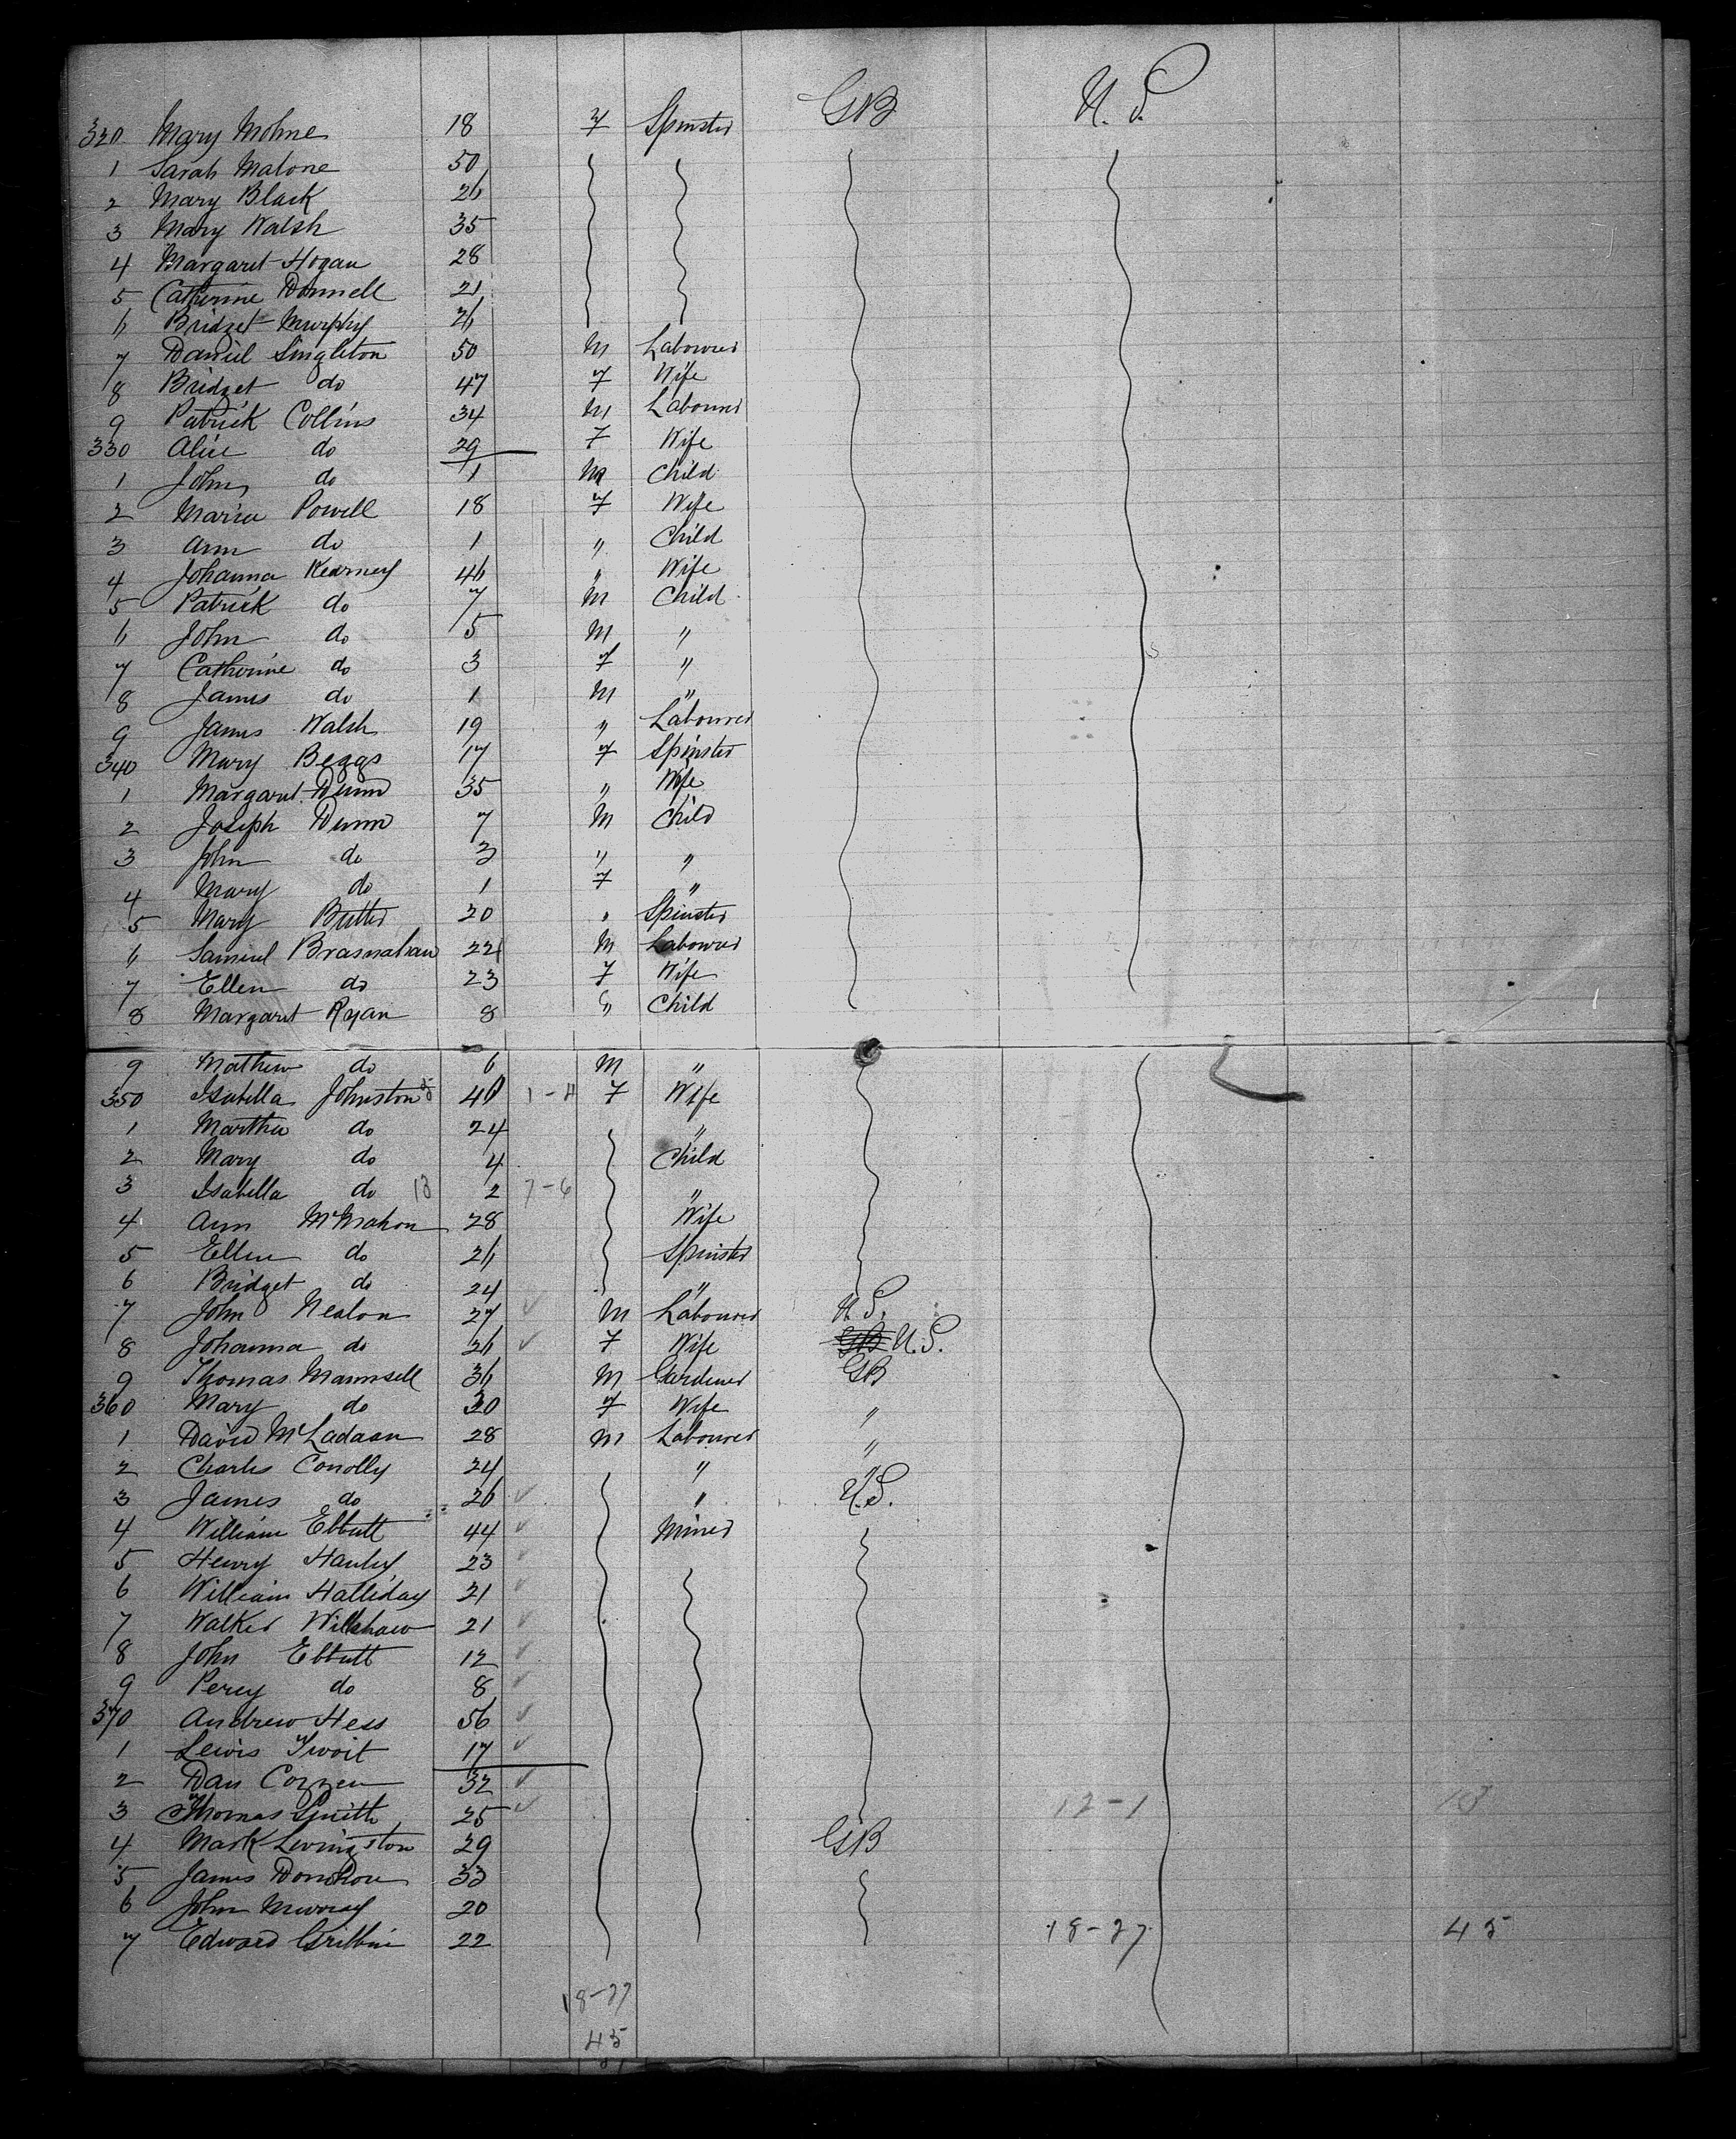 320 Mary Mohne 18 F Spinster GB U.S.
1 Sarah Malone 50
2 Mary Black 26
3 Mary Walsh 35
4 Margaret Hogan 28
5 Catherine Donnell 21
6 Bridget Murphy 26
7 Daniel Singleton 50 M Labourer
8 Bridget do 47 F Wife
9 Patrick Collins 34 M Labourer
330 Alice do 29 F Wife
1 John do 1 M Child
2 Maria Powell 18 F Wife
3 Ann do 1 " Child
4 Johanna Kearney 46 " Wife
5 Patrick do 7 M Child
6 John do 5 M "
7 Catherine do 3 F "
8 James do 1 M "
9 James Walsh 19 " Labourer
340 Mary Beggs 17 F Spinster
1 Margaret Dunn 35 " Wife
2 Joseph Dunn 7 M Child
3 John do 3 " "
4 Mary do 1 F "
5 Mary Butler 20 " Spinster
6 Samuel Brasnahan 22 M Labourer
7 Ellen do 23 F Wife
8 Margaret Ryan 8 " Child
9 Mathew do 6 M "
350 Isabella Johnston 40 1-11 F Wife
1 Martha do 24 "
2 Mary do 4 Child
3 Isabella do 13 2 7-6 "
4 Ann McMahon 28 Wife
5 Ellen do 26 Spinster
6 Bridget do 24 "
7 John Nealon 27 M Labourer U.S.
8 Johanna do 26 F Wife GB U.S.
9 Thomas Mannsell 36 M Gardener GB
360 Mary do 30 F Wife "
1 David McLadaan 28 M Labourer "
2 Charles Conolly 24 " "
3 James do 26 " U.S.
4 William Ebbutt 44 Miner
5 Henry Hanley 23
6 William Halliday 21
7 Walker Willshaw 21
8 John Ebbutt 12
9 Percy do 8
370 Andrew Hess 56
1 Lewis Twoit 17
2 Dan Cozzen 32
3 Thomas Smith 25 12-1 13
4 Mark Livingston 29 GB
5 James Donohoe 33
6 John Murray 20
7 Edward Gribbin 22 18-27 45
18-27
45